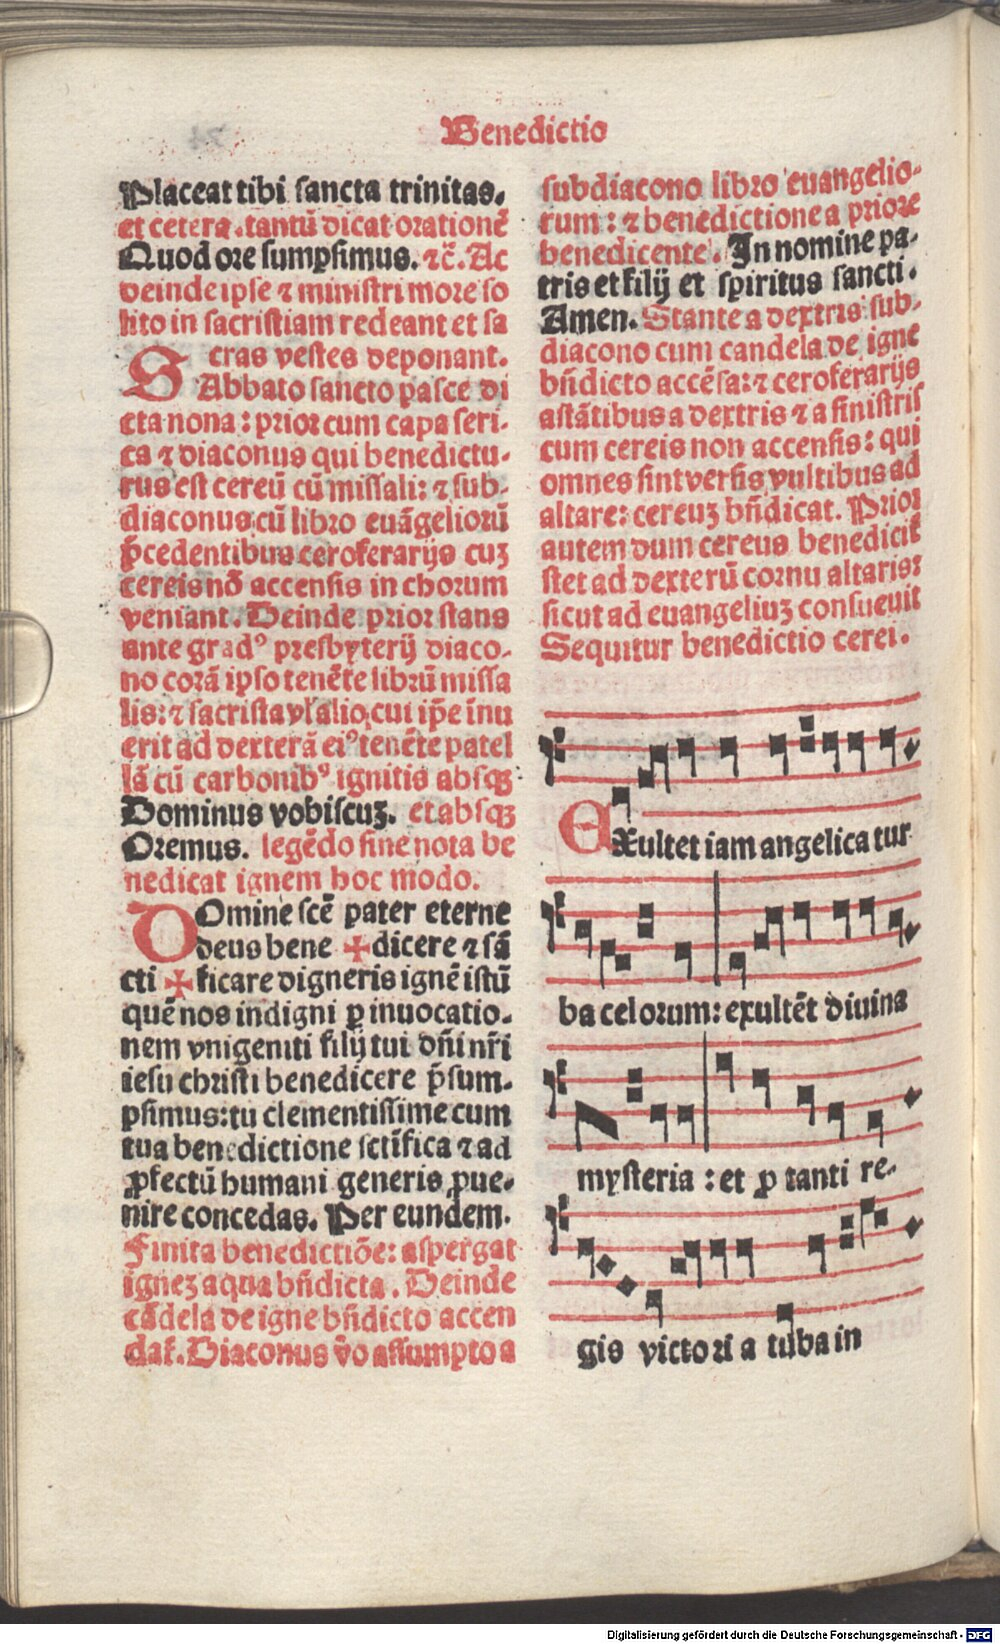 Benedictio
Placeat tibi sancta trinitas.
et cetera. tantū dicat orationē
Quod ore sumpsimus. ⁊c̄. Ac
deinde ipse ⁊ ministri more so
lito in sacristiam redeant et sa
cras vestes deponant.
SAbbato sancto pasce di
cta nona: prior cum capa seri-
ca ⁊ diaconus qui benedictu-
rus est cereū cū missali: ⁊ sub-
diaconus cū libro euāgeliorū
p̄cedentibus ceroferarijs cuꝫ
cereis nō accensis in chorum
veniant. Deinde prior stans
ante gradꝰ presbyterij diaco-
no corā ipso tenēte librū missa
lis: ⁊ sacrista vl̓ alio, cui ip̄e īnu
erit ad dexterā eiꝰ tenēte patel
lā cū carbonibꝰ ignitis absqꝫ
Dominus vobiscuꝫ. et absqꝫ
Oremus. legēdo sine nota be
nedicat ignem hoc modo.
DOmine scē pater eterne
deus bene ✠ dicere ⁊ sā
cti ✠ ficare digneris ignē istū
quē nos indigni ꝑ inuocatio-
nem vnigeniti filij tui dn̄i nr̄i
iesu christi benedicere p̄sum-
psimus: tu clementissime cum
tua benedictione sctīfica ⁊ ad
ꝓfectū humani generis ꝓue-
nire concedas. Per eundem.
Finita benedictiōe: aspergat
igneꝫ aqua bn̄dicta. Deinde
cādela de igne bn̄dicto accen
dat̄. Diaconus v̄o assumpto a
subdiacono libro euangelio-
rum: ⁊ benedictione a priore
benedicente. In nomine pa-
tris et filij et spiritus sancti.
Amen. Stante a dextris sub-
diacono cum candela de igne
bn̄dicto accēsa: ⁊ ceroferarijs
astātibus a dextris ⁊ a sinistris
cum cereis non accensis: qui
omnes sint versis vultibus ad
altare: cereuꝫ bn̄dicat. Prior
autem dum cereus benedicit̄
stet ad dexterū cornu altaris:
sicut ad euangeliuꝫ consueuit
Sequitur benedictio cerei.
EXultet iam angelica tur
ba celorum: exultēt diuina
mysteria: et ꝓ tanti re-
gis victori a tuba in
Digitalisierung gefördert durch die Deutsche Forschungsgemeinschaft - DFG